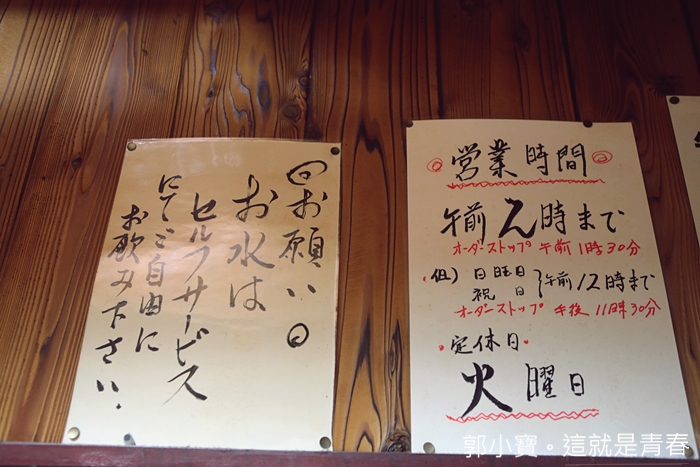 ◎お願い◎
お水は
セルフサービス
にてご自由に
お飲み下さい.
◎営業時間◎
午前2時まで
オーダーストップ 午前1時30分
(但) 日曜日 祝日 } 午前12時まで
オーダーストップ 午後11時30分
・定休日・
火曜日
郭小寶。這就是青春